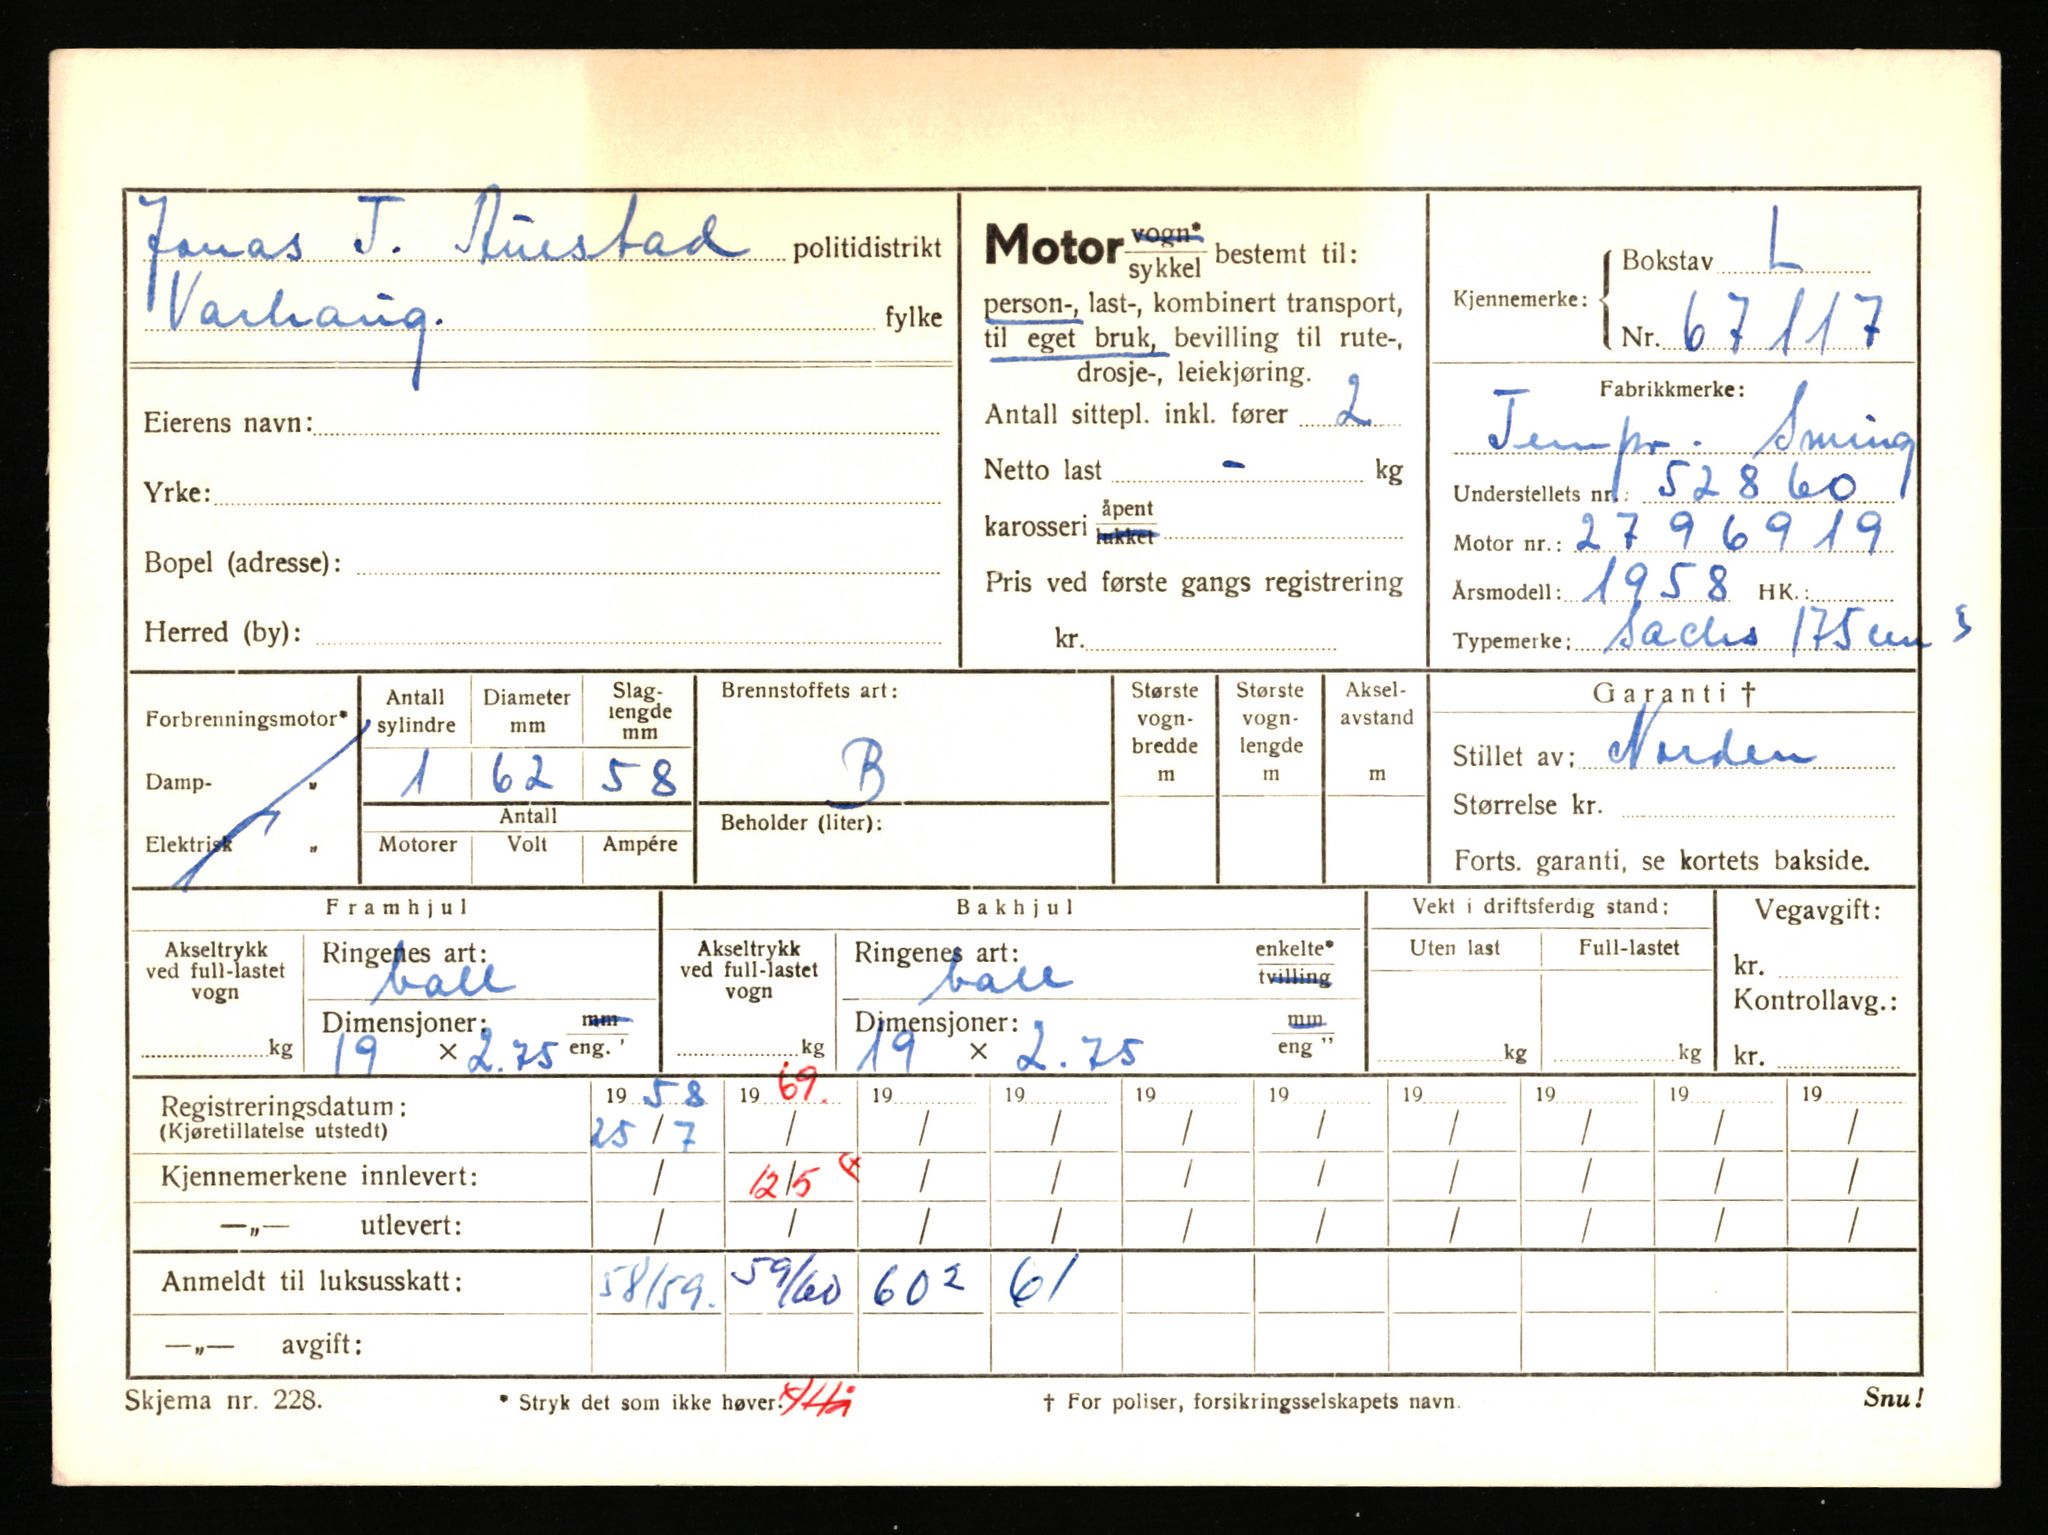 Jonas T. Auestad politidistrikt
Varhaug. fylke
Eierens navn:
Yrke:
Bopel (adresse):
Herred (by):
Motor vogn* / sykkel bestemt til:
person-, last-, kombinert transport,
til eget bruk, bevilling til rute-,
drosje-, leiekjøring.
Antall sittepl. inkl. fører 2
Netto last - kg
karosseri åpent / lukket
Pris ved første gangs registrering
kr.
Kjennemerke: Bokstav L
Nr. 67117
Fabrikkmerke:
Tempo Swing
Understellets nr.: 52860
Motor nr.: 2796919
Årsmodell: 1958 HK.:
Typemerke: Sachs 175 cm 3
Forbrenningsmotor*
Damp- „
Elektrisk „
Antall sylindre Diameter mm Slag-lengde mm
1 62 58
Antall
Motorer Volt Ampére
Brennstoffets art:
B
Beholder (liter):
Største vogn-bredde m
Største vogn-lengde m
Aksel-avstand m
Garanti †
Stillet av: Norden
Størrelse kr.
Forts. garanti, se kortets bakside.
Framhjul
Akseltrykk ved full-lastet vogn
kg
Ringenes art:
ball
Dimensjoner: mm / eng. '
19 × 2.75
Bakhjul
Akseltrykk ved full-lastet vogn
kg
Ringenes art: enkelte* / tvilling
ball
Dimensjoner: mm / eng "
19 × 2.75
Vekt i driftsferdig stand:
Uten last Full-lastet
kg kg
Vegavgift:
kr.
Kontrollavg.:
kr.
Registreringsdatum: 19 58 19 69. 19 19 19 19 19 19 19 19
(Kjøretillatelse utstedt) 25 / 7 / / / / / / / / /
Kjennemerkene innlevert: / 12/5 / / / / / / / /
—„— utlevert: / / / / / / / / / /
Anmeldt til luksusskatt: 58/59. 59/60 60 2 61
—„— avgift:
Skjema nr. 228. * Stryk det som ikke høver. † For poliser, forsikringsselskapets navn. Snu!